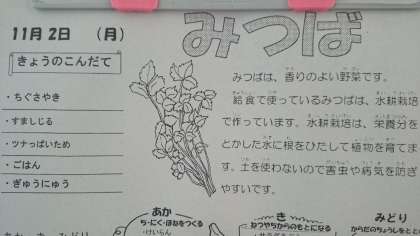 11月2日 (月)
みつば
きょうのこんだて
・ちぐさやき
・すましじる
・ツナっぱいため
・ごはん
・ぎゅうにゅう
みつばは、香りのよい野菜です。
給食で使っているみつばは、水耕栽培
で作っています。水耕栽培は、栄養分を
とかした水に根をひたして植物を育てま
す。土を使わないので害虫や病気を防ぎ
やすいです。
あか
ち・にく・ほねをつくる
き
ねつやちからのもとになる
みどり
からだのちょうしをと
あか み みどり